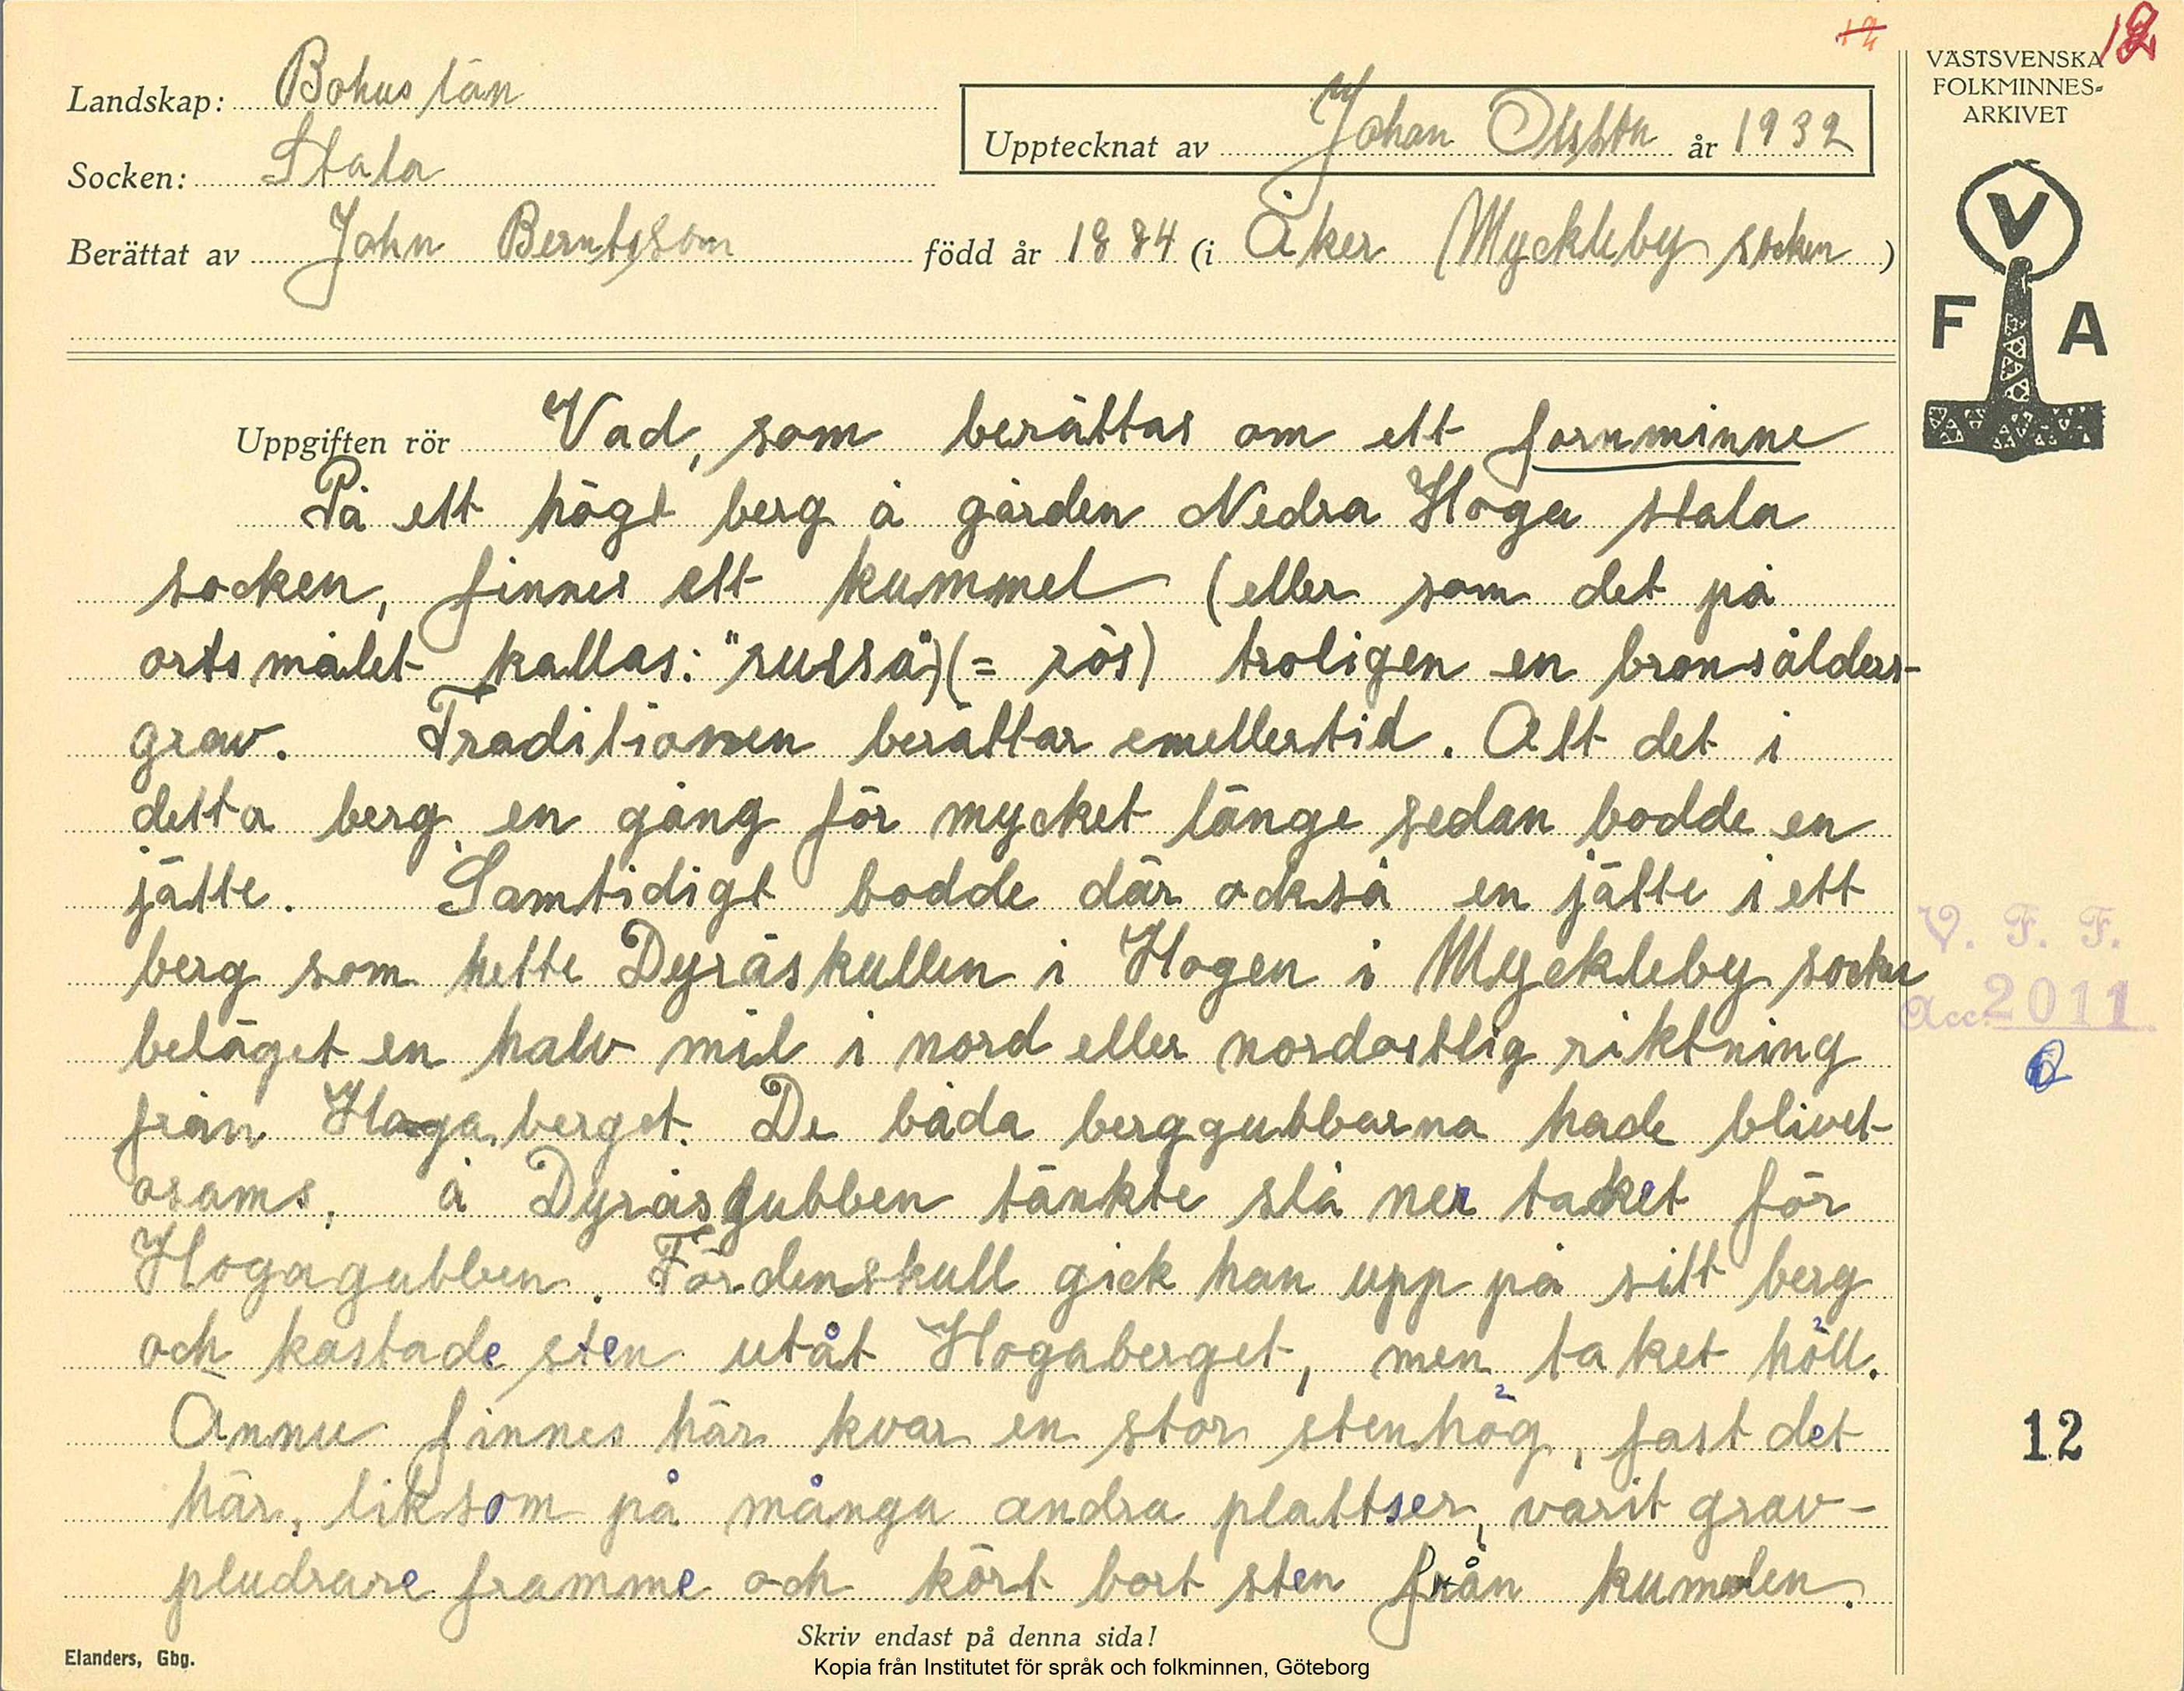 12
12
Landskap: Bohuslän
Socken: Stala
Upptecknat av Johan Olsson år 1932
Berättat av John Berntsson född år 1884 (i Åker Myckleby socken)
VÄSTSVENSKA
FOLKMINNES-
ARKIVET
V
F A
Uppgiften rör Vad, som berättas om ett fornminne
På ett högt berg å gården Nedra Hoga stala
socken, finnes ett kummel (eller som det på
ortsmålet kallas: "russä") (= rös) troligen en bronsålders-
grav. Traditionen berättar emellertid. Att det i
detta berg en gång för mycket länge sedan bodde en
jätte. Samtidigt bodde där också en jätte i ett
berg som hette Dyråskullen i Hogen i Myckleby socken
beläget en halv mil i nord eller nordostlig riktning
från Hogaberget. De båda berggubbarna hade blivet
osams, å Dyråsgubben tänkte slå ner taket för
Hogagubben. Fördenskull gick han upp på sitt berg
och kastade sten utåt Hogaberget, men taket höll.
Ännu finnes här kvar en stor stenhög, fast det
här, liksom på många andra plattser, varit grav-
pludrare framme och kört bort sten från kumlen.
V. F. F.
Acc. 2011
12
Skriv endast på denna sida!
Elanders, Gbg.
Kopia från Institutet för språk och folkminnen, Göteborg